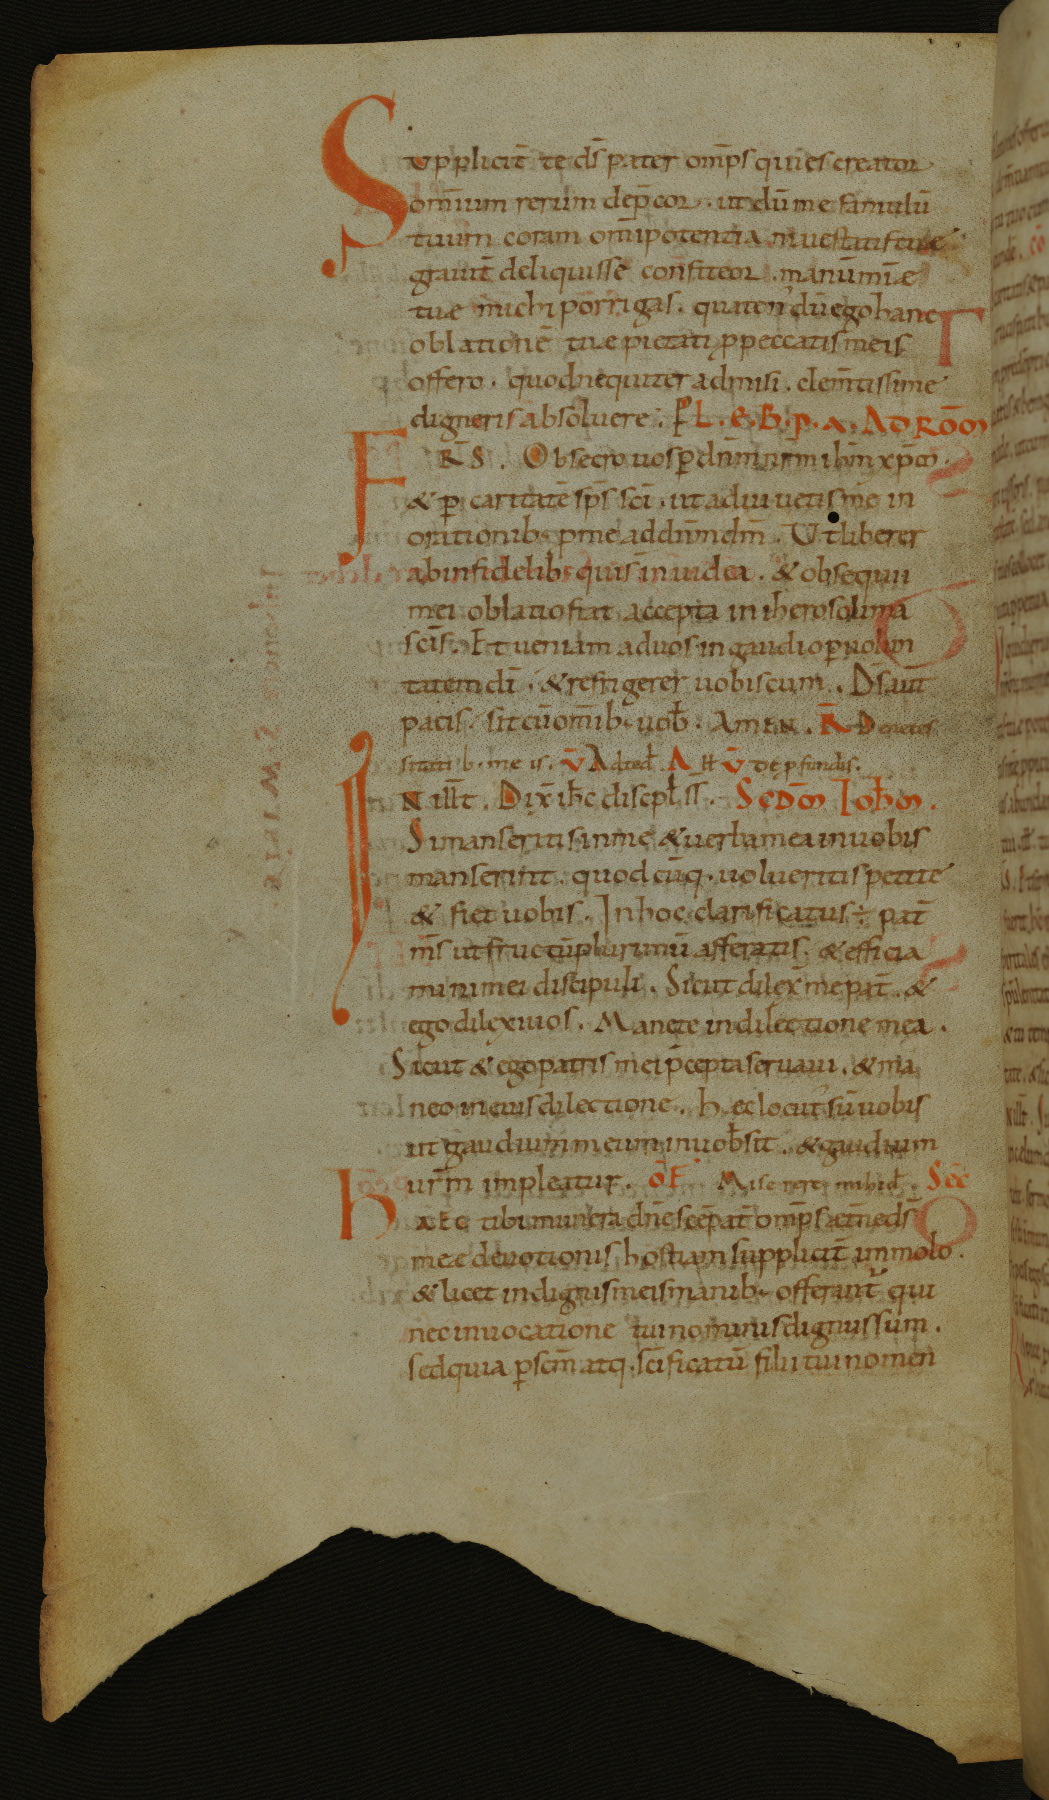 Supplicit̄ te d̄s pater om̄ps qui es creator
om̄ium rerum dep̄cor . ut dū me famulū
tuum coram om̄ipotentia maiestatis tuę
grauit̄ deliquisse confiteor . manū mīę
tuę michi porrigas . quaten' dū ego hanc
oblationē tuę pietati p peccatis meis
offero . quod nequiter admisi . clem̄tissime
digneris absoluere . EL . E . B . P . A . AD ROM̄
FRS̄ . Obsecro uos p dn̄m nr̄m ih̄m xp̄m .
& p caritatē sp̄s sc̄i . ut adiuuetis me in
orationib; p me ad dūm dm̄ . Ut liberer
ab infidelib; qui s̄ in iudea . & obsequii
mei oblatio fiat accepta in iherosolima
sc̄is . Et ueniam ad uos in gaudio p uolun
tatem dī . & refrigerer uobiscum . D̄s aut̄
pacis . sit cū om̄ib; uob̄ . Amen . R̄ De necess
itatib . meis . V̄ Ad te d̄ . A ll V̄ De pfundis .
In ill̄t . Dix̄ ih̄c discipl̄is . Scd̄m Ioh̄m .
Si manseritis in me & uerba mea in uobis
manserint . quodcūq; uolueritis petite
& fiet uobis . In hoc clarificatus ÷ pat̄
m̄s ut fructū plurimū afferatis . & efficia
mini mei discipuli . Sicut dilex̄ me pat̄ . &
ego dilexi uos . Manete in dilectione mea .
Sicut & ego patris mei p̄cepta seruaui . & ma
neo in eius dilectione . Hęc locut' sū uobis
ut gaudium meum in uob̄ sit . & gaudium
ur̄m impleatur . OF̄ Miserere mihi d̄ . Sēc
Haec tibi munera dn̄e scē pat̄ om̄ps ęt̄nę d̄s
meę deuotionis hostiam supplicit̄ immolo .
& licet indignis meis manib; offerant̄ qui
nec inuocatione tui nominis dignus sum .
sed quia p scm̄ atq; sc̄ificatū filii tui nomen